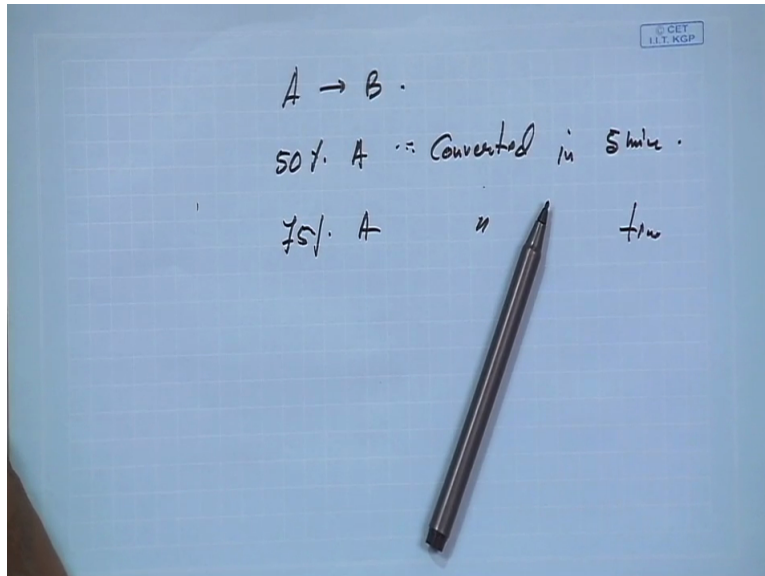 © CET
I.I.T. KGP
A → B .
50 %. A ∴ Converted in 5 min .
75 %. A " time